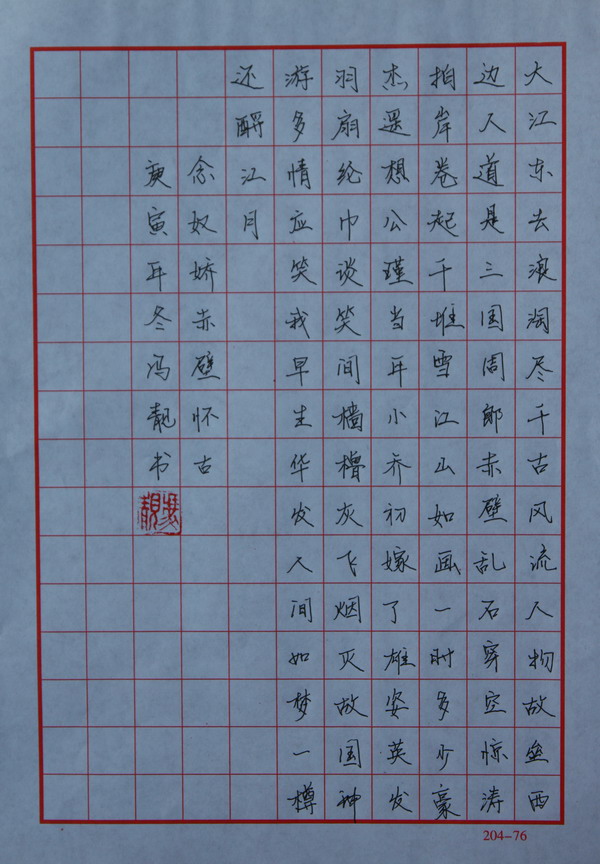 大江东去浪淘尽千古风流人物故垒西
边人道是三国周郎赤壁乱石穿空惊涛
拍岸卷起千堆雪江山如画一时多少豪
杰遥想公瑾当年小乔初嫁了雄姿英发
羽扇纶巾谈笑间樯橹灰飞烟灭故国神
游多情应笑我早生华发人间如梦一樽
还酹江月
念奴娇赤壁怀古
庚寅年冬冯靓书
204-76